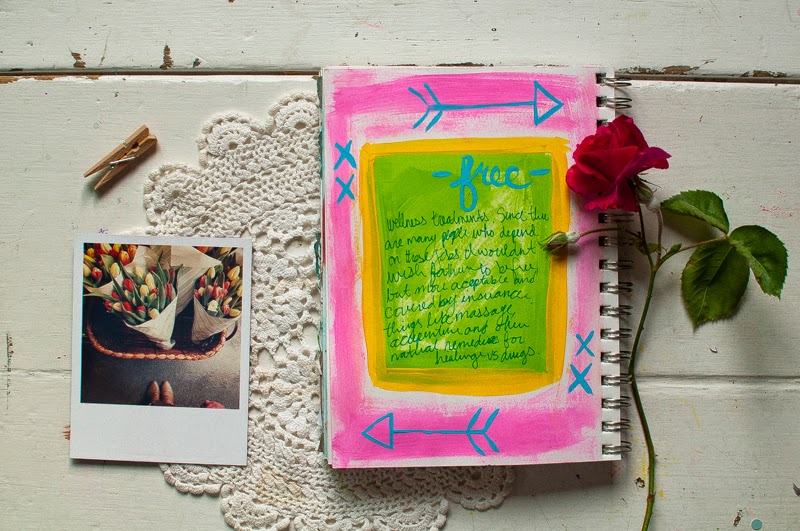 - free -
wellness treatments. Since there
are many people who depend
on these jobs I wouldn't
wish for them to be free
but more acceptable and
covered by insurance
things like massage,
acupuncture and other
natural remedies for
healing vs drugs.